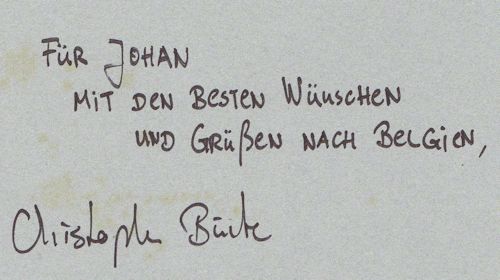 FÜR JOHAN
MIT DEN BESTEN WÜNSCHEN
UND GRÜßEN NACH BELGIEN,
Christoph